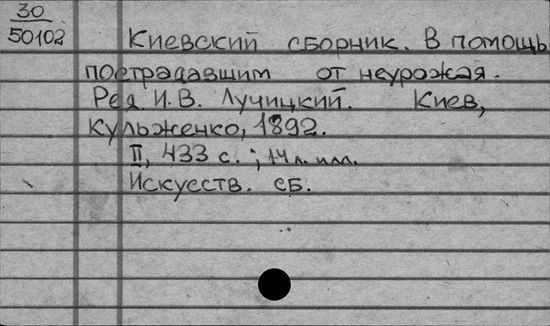 30
50102
Киевский сборник. В помощь
пострадавшим от неурожая.
Ред И.В. Лучицкий. Киев,
Кульженко, 1892.
II, 433 с.; 14 л. илл.
Искусств. сб.